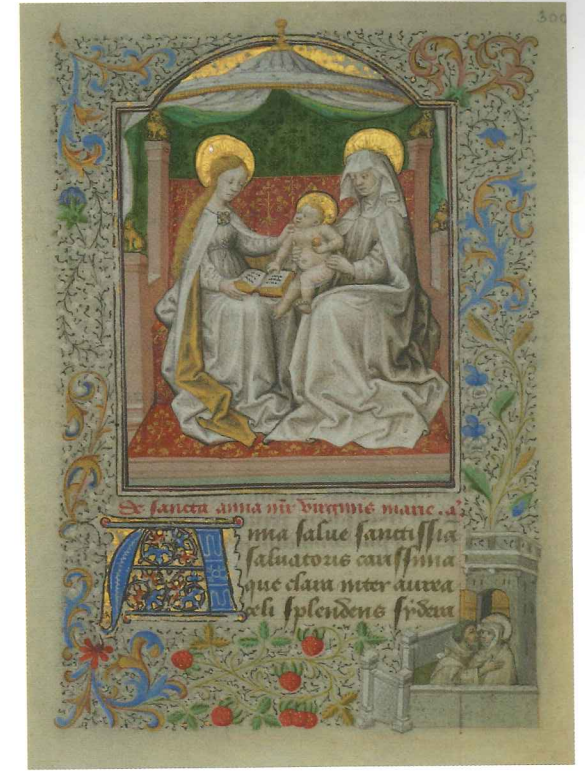 300
De sancta anna mr̄ virginis marie. a᷒
Anna salue sanctissiā
saluatoris carissima
que clara inter aurea
celi splendens sydera